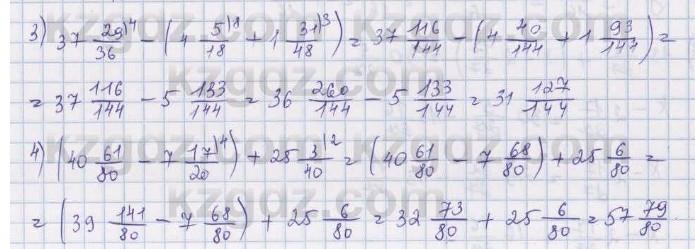 3) 37 29/36 |4 - (4 5/18 |8 + 1 31/48 |3) = 37 116/144 - (4 40/144 + 1 93/144) =
= 37 116/144 - 5 133/144 = 36 260/144 - 5 133/144 = 31 127/144
4) (40 61/80 - 7 17/20 |4) + 25 3/40 |2 = (40 61/80 - 7 68/80) + 25 6/80 =
= (39 141/80 - 7 68/80) + 25 6/80 = 32 73/80 + 25 6/80 = 57 79/80